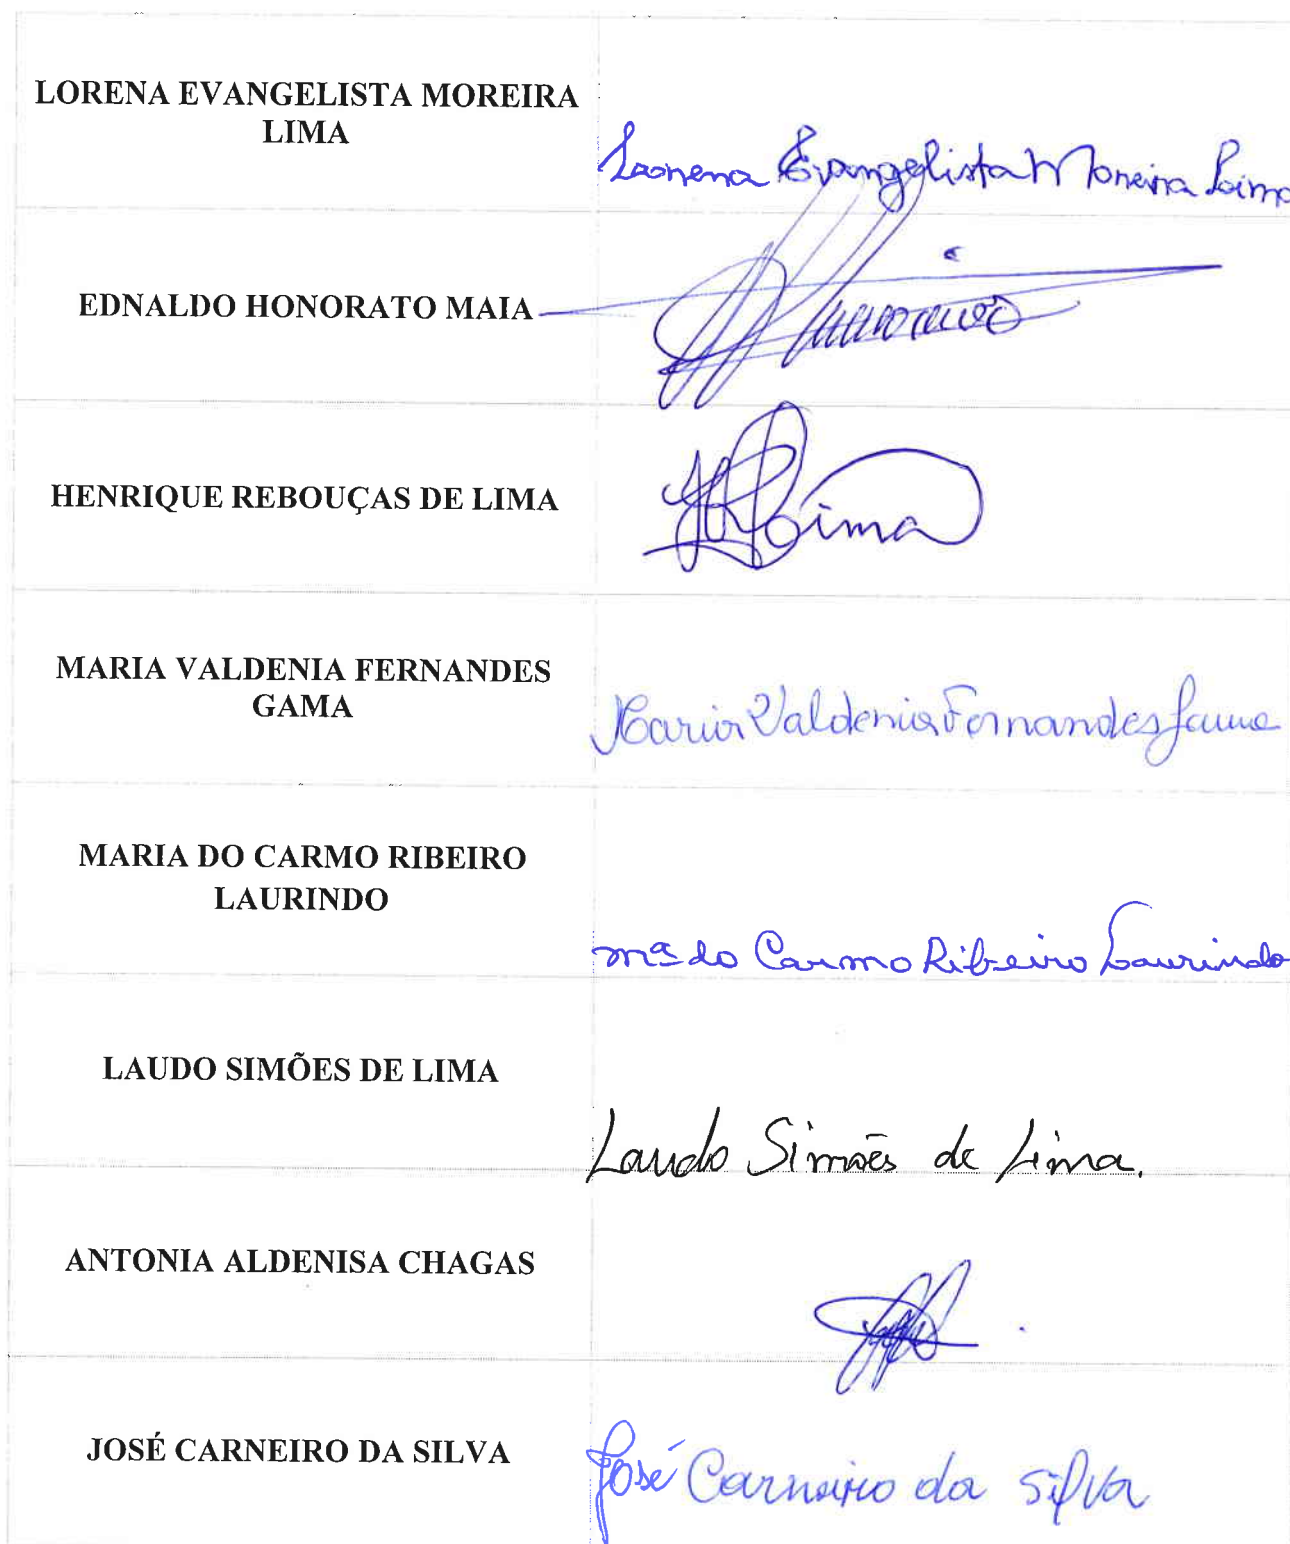 LORENA EVANGELISTA MOREIRA
LIMA
Lorena Evangelista Moreira Lima
EDNALDO HONORATO MAIA
HENRIQUE REBOUÇAS DE LIMA
Lima
MARIA VALDENIA FERNANDES
GAMA
Maria Valdenia Fernandes Gama
MARIA DO CARMO RIBEIRO
LAURINDO
Mª do Carmo Ribeiro Laurindo
LAUDO SIMÕES DE LIMA
Laudo Simões de Lima.
ANTONIA ALDENISA CHAGAS
JOSÉ CARNEIRO DA SILVA
José Carneiro da Silva